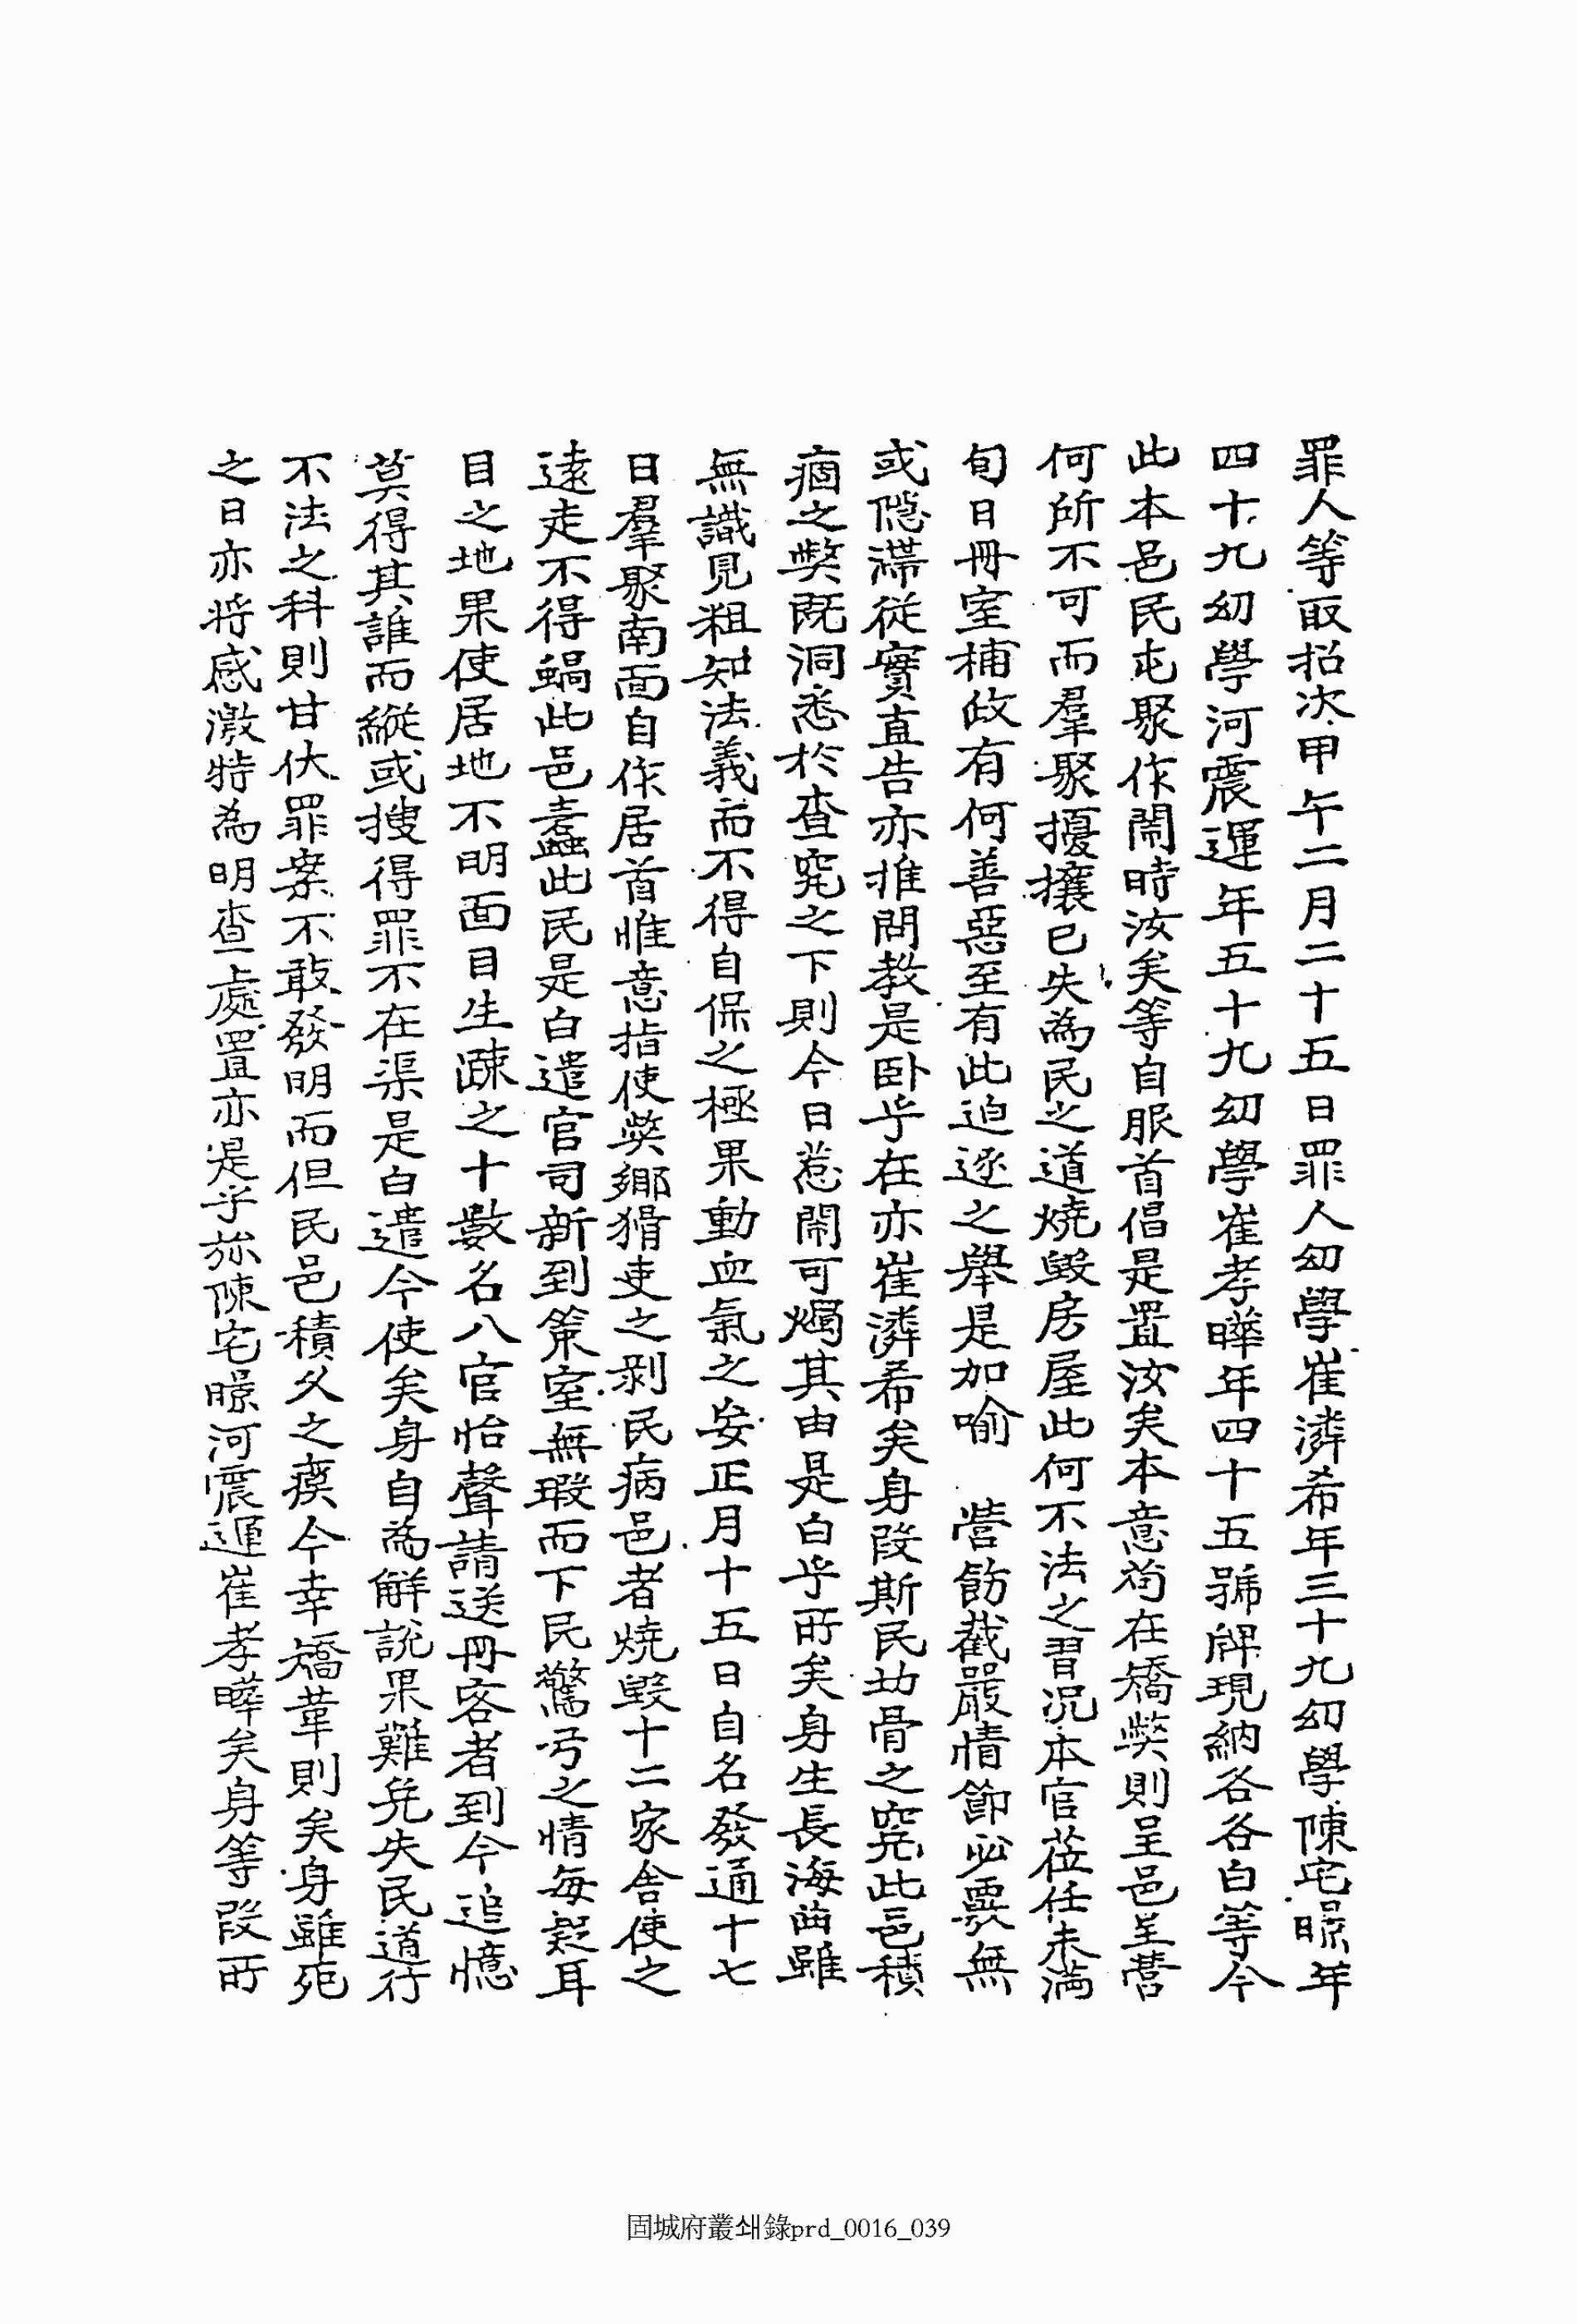 罪人等取招次甲午二月二十五日罪人幼學崔潾希年三十九幼學陳宅㬌年
四十九幼學河震運年五十九幼學崔孝曄年四十五號牌現納各各白等今
此本邑民屯聚作鬧時汝矣等自服首倡是置汝矣本意苟在矯獘則呈邑呈營
何所不可而羣聚擾攘已失為民之道燒毀房屋此何不法之習況本官莅任未滿
旬日冊室補政有何善惡至有此迫逐之舉是加喻 營飭截嚴情節必要無
或隱滯從實直告亦推問教是卧乎在亦崔潾希矣身段斯民幼骨之寃此邑積
痼之獘既洞悉於查究之下則今日惹鬧可燭其由是白乎所矣身生長海曲雖
無識見粗知法義而不得自保之極果動血氣之妄正月十五日自名發通十七
日羣聚南面自作居首惟意指使獘鄉猾吏之剥民病邑者燒毀十二家舍使之
遠走不得蝎此邑蠹此民是白遣官司新到策室無瑕而下民驚弓之情每疑耳
目之地果使居地不明面目生疎之十數名入官怡聲請送冊客者到今追憶
莫得其誰而縱或搜得罪不在渠是白遣今使矣身自為觧說果難免失民道行
不法之科則甘伏罪案不敢發明而但民邑積久之瘼今幸矯革則矣身雖死
之日亦將感激特為明查處置亦是乎旀陳宅㬌河震運崔孝曄矣身等段所
固城府叢쇄錄prd_0016_039